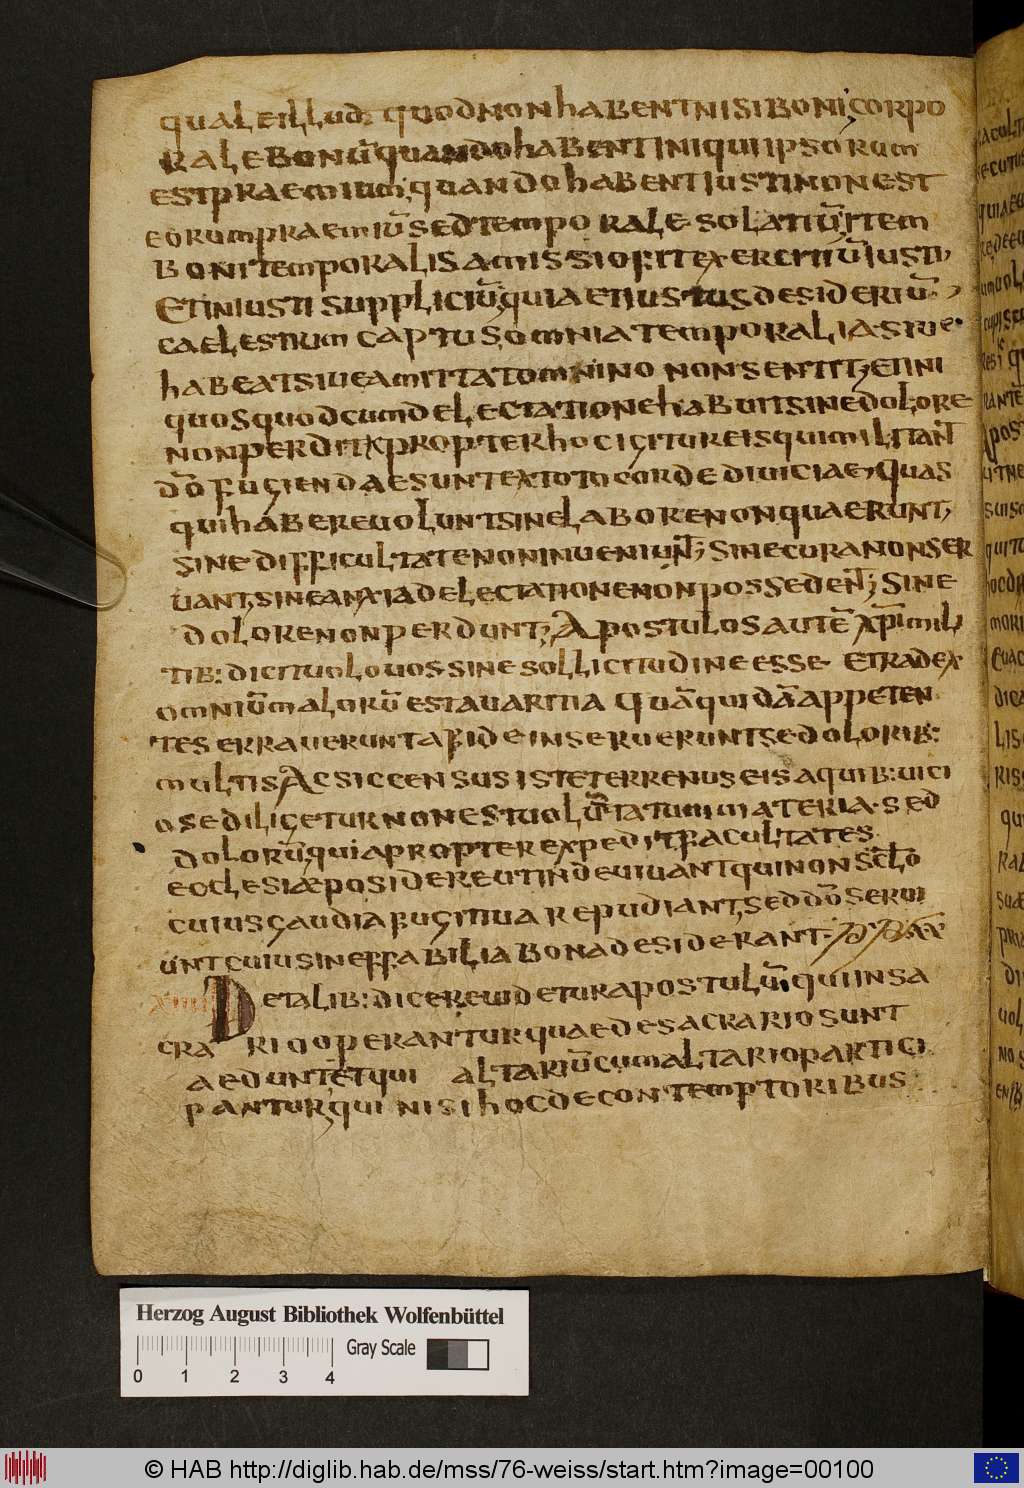 qualeillud. quodnonhabentnisiboni; corpo
ralebonūquandohabentiniquiipsorum
estpraemium; quandohabentiustinonest
eorumpraemiūsedtemporalesolatiū; item
bonitemporalisamissiofitexercitiūiusti,
Etiniustisuppliciū; quiaetiustusdesideriū
caelestiumcaptusomniatemporaliasiue
habeatsiueamittatomninononsentit; etini
quosquodcumdelectationehabuitsinedolore
nonperdit; propterhocigitureisquimilitant
dōfugiendaesuntextotocordediuiciae, quas
quihabereuoluntsinelaborenonquaerunt;
sinedifficultatenoninueniunt; sinecuranonser
uant; sineanxiadelectationenonpossedent; Sine
dolorenonperdunt; Apostulosautē xp̄imili
tib: dicituolouossinesollicitudineesse. Etradex
omniūmalorū estauaritia quāquidāappeten
teserraueruntafideinserueruntsedolorib:
multis; Acsiccensusisteterrenuseisaquib: uici
osediligeturnonestuolūtatummateria. sed
dolorū; quiapropterexpeditfacultates
ecclesiaeposidereutindeuiuantquinonsclo
cuiusgaudiafugitiuarepudiant; seddōserui
untcuiusineffabiliabonadesiderant.
Detalib: dicereuideturapostulū; quiinsa
crariooperanturquaedesacrariosunt
aeduntetqui altariūcumaltarioparticipi
pantur; quinisihocdecontemptoribus
Herzog August Bibliothek Wolfenbüttel
Gray Scale
0 1 2 3 4
© HAB http://diglib.hab.de/mss/76-weiss/start.htm?image=00100